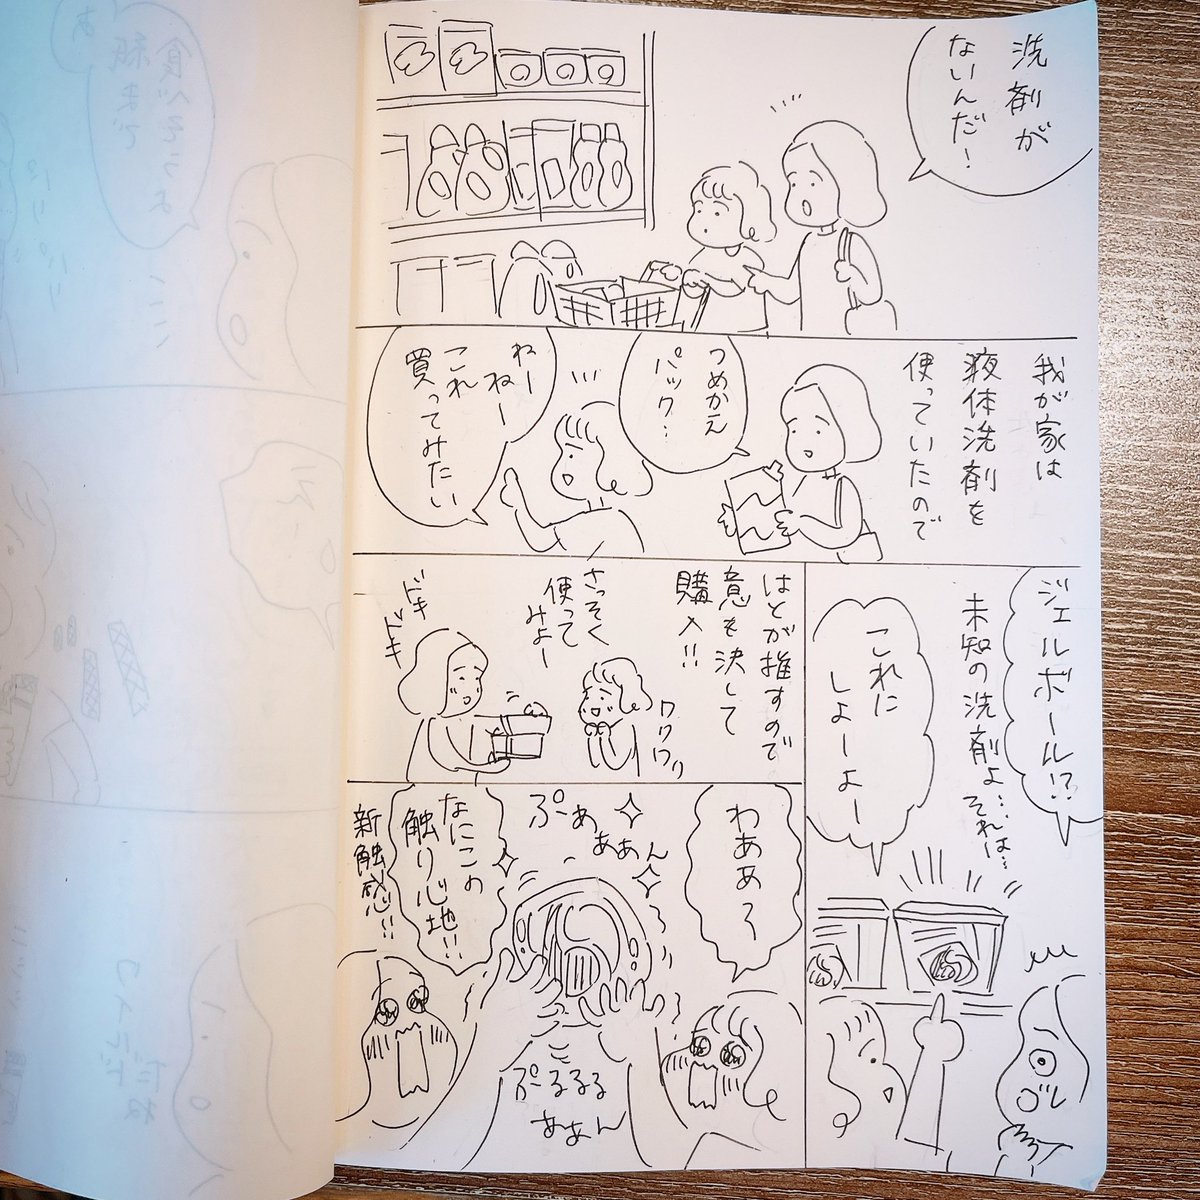 洗剤が
ないんだ!
我が家は
液体洗剤を
使っていたので
つめかえ
パック…
ねー
ねー
これ
買ってみたい
ジェルボール!?
未知の洗剤よ…それは…
これに
しよーよー
はとが推すので
意を決して
購入!!
さっそく
使って
みよー
ワクワク
ドキ
ドキ
わああ〜
ぷぁぁぁん
なにこの
触り心地!!
新触感!!
ぷるるる
ああん
あ
紙まで
食べそうよ
パリパリ
ワイルド
だね